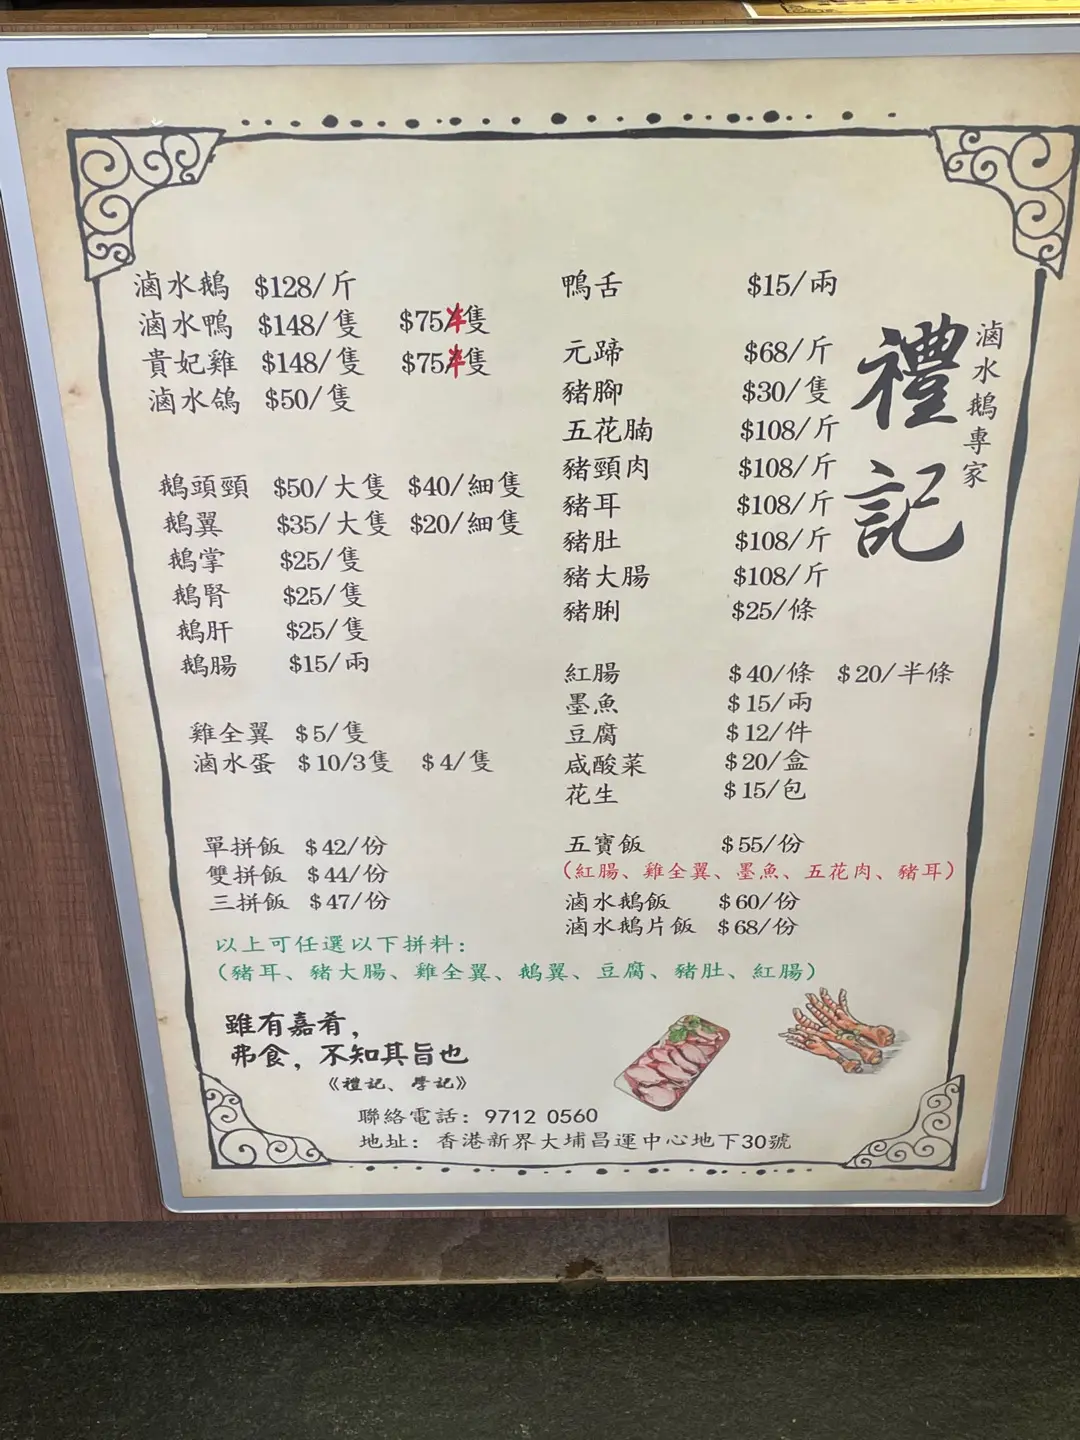 滷水鵝 $128/斤
滷水鴨 $148/隻 $75/半隻
貴妃雞 $148/隻 $75/半隻
滷水鴿 $50/隻
鵝頭頸 $50/大隻 $40/細隻
鵝翼 $35/大隻 $20/細隻
鵝掌 $25/隻
鵝腎 $25/隻
鵝肝 $25/隻
鵝腸 $15/兩
雞全翼 $5/隻
滷水蛋 $10/3隻 $4/隻
單拼飯 $42/份
雙拼飯 $44/份
三拼飯 $47/份
以上可任選以下拼料：
（豬耳、豬大腸、雞全翼、鵝翼、豆腐、豬肚、紅腸）
鴨舌 $15/兩
元蹄 $68/斤
豬腳 $30/隻
五花腩 $108/斤
豬頸肉 $108/斤
豬耳 $108/斤
豬肚 $108/斤
豬大腸 $108/斤
豬脷 $25/條
紅腸 $40/條 $20/半條
墨魚 $15/兩
豆腐 $12/件
咸酸菜 $20/盒
花生 $15/包
五寶飯 $55/份
（紅腸、雞全翼、墨魚、五花肉、豬耳）
滷水鵝飯 $60/份
滷水鵝片飯 $68/份
滷水鵝專家
禮記
雖有嘉肴，
弗食，不知其旨也
《禮記、學記》
聯絡電話：9712 0560
地址：香港新界大埔昌運中心地下30號